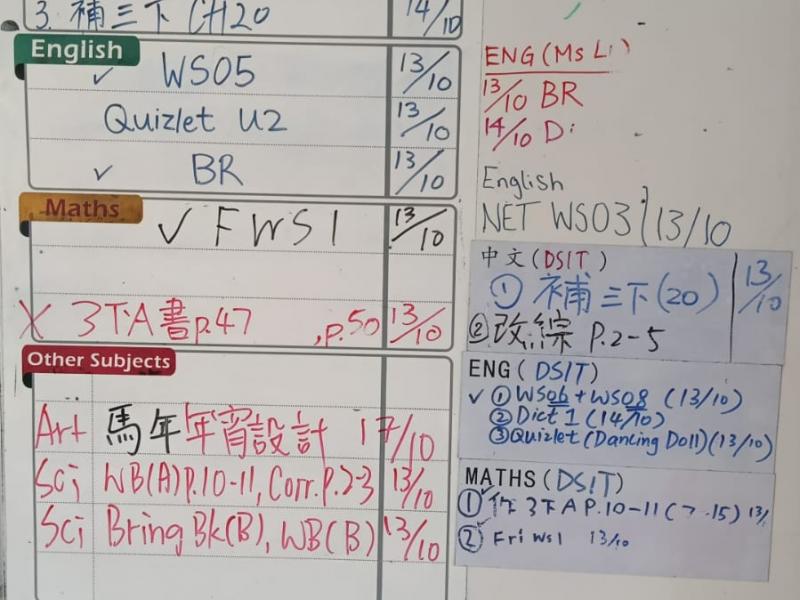 3. 補三下 CH20 14/10
English
✓ WS05 13/10
Quizlet U2 13/10
✓ BR 13/10
Maths
✓ FWS1 13/10
X 3下A書p.47 ,p.50 13/10
Other Subjects
Art 馬年年宵設計 17/10
Sci WB(A)P.10-11, Corr.P.2-3 13/10
Sci Bring Bk(B), WB(B) 13/10
ENG (Ms Li)
13/10 BR
14/10 D:
English
NET WS03 13/10
中文(DSIT)
① 補三下(20) 13/10
② 改綜 P.2-5
ENG (DSIT)
✓ ① WS06 + WS08 (13/10)
② Dict 1 (14/10)
③ Quizlet (Dancing Doll) (13/10)
MATHS (DSIT)
① 作3下A P.10-11 13/
② Fri WS1 13/10